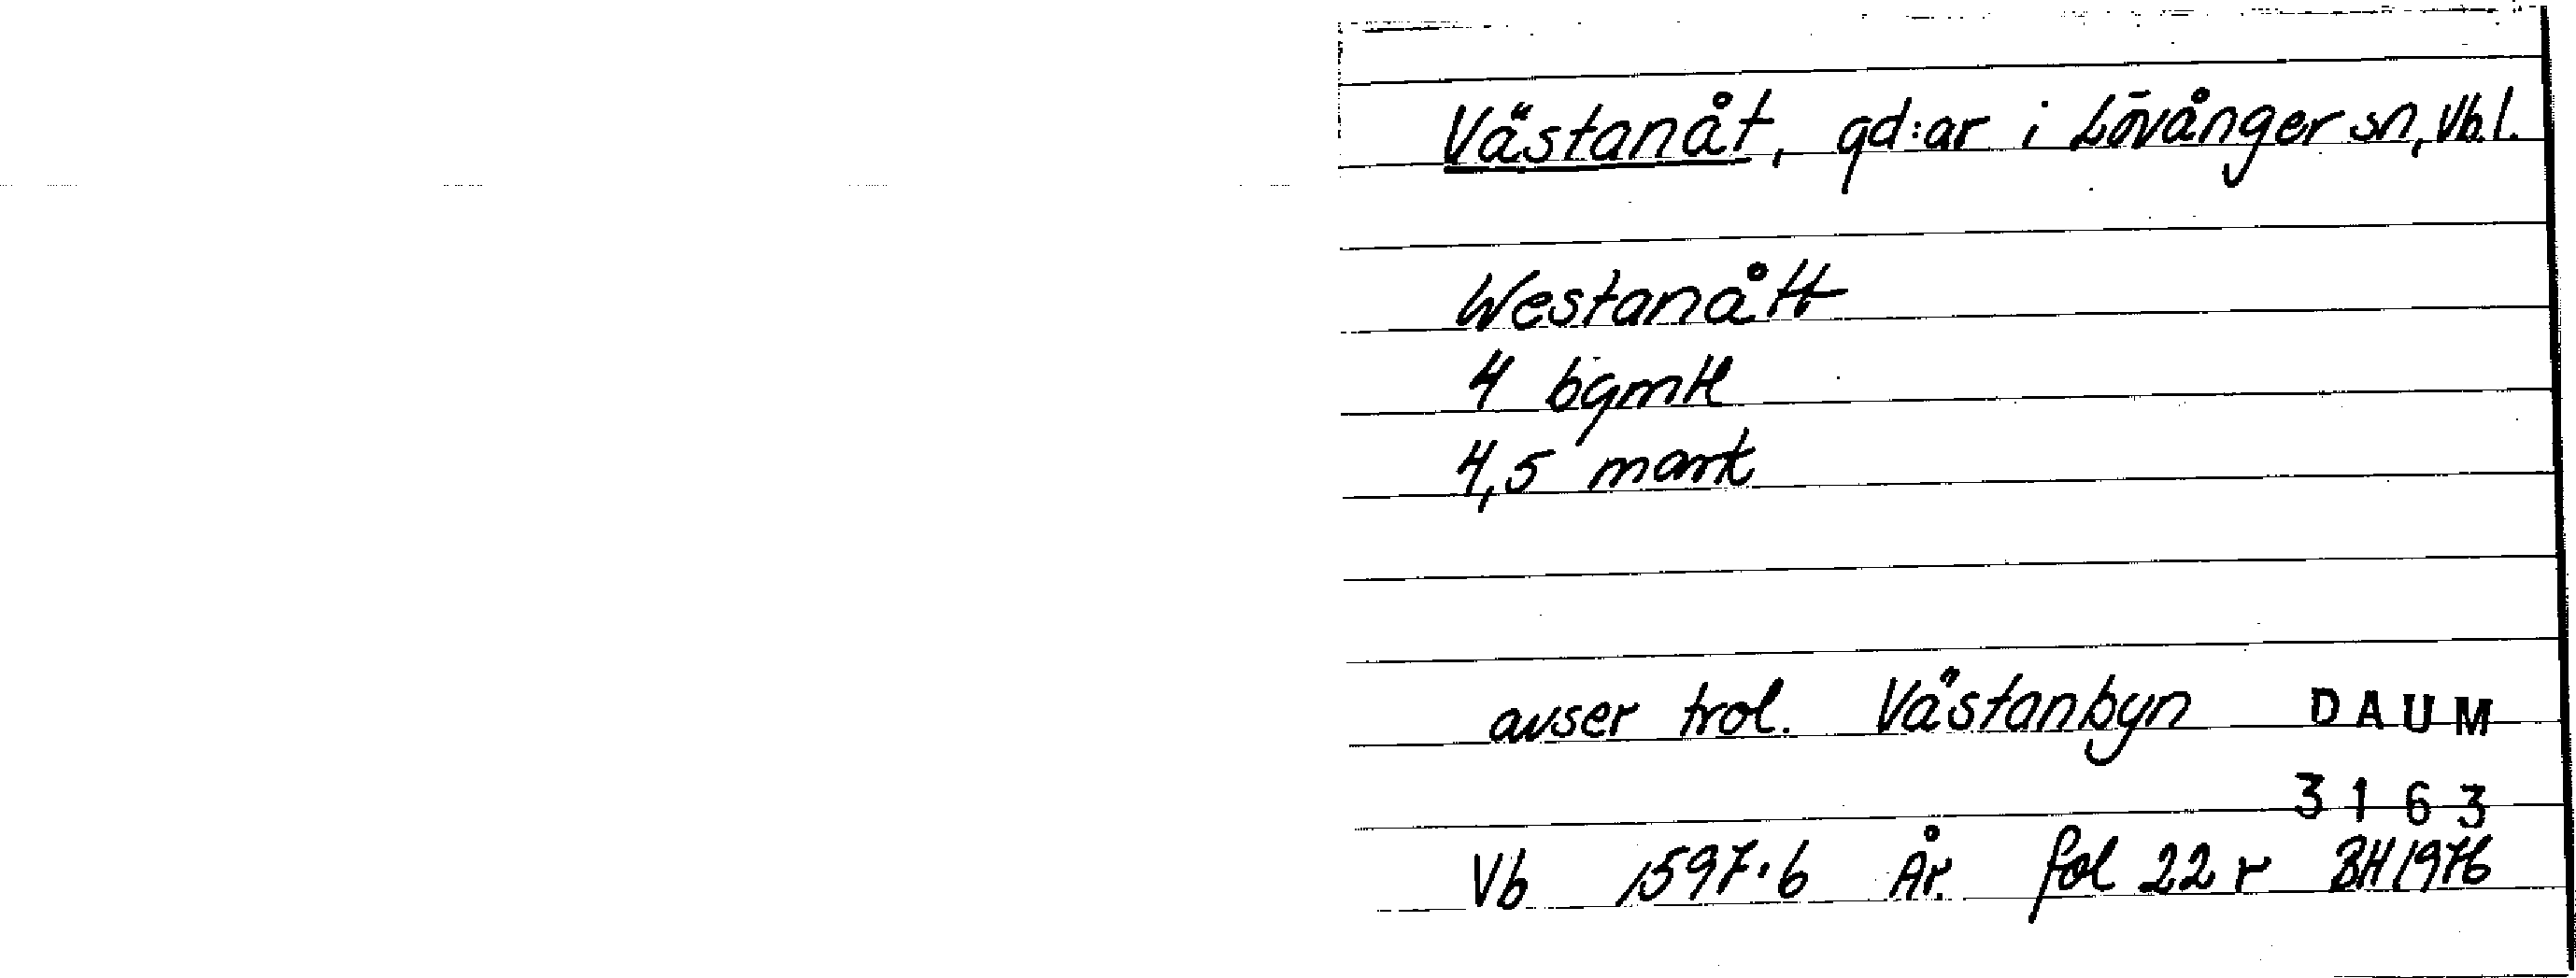 Västanåt, gd:ar i Lövånger sn, Vb.l.
Westanått
4 bgmtl
4,5 mark
avser trol. Västanbyn DAUM
3163
Vb 1597:6 År. fol 22 r BH 1976